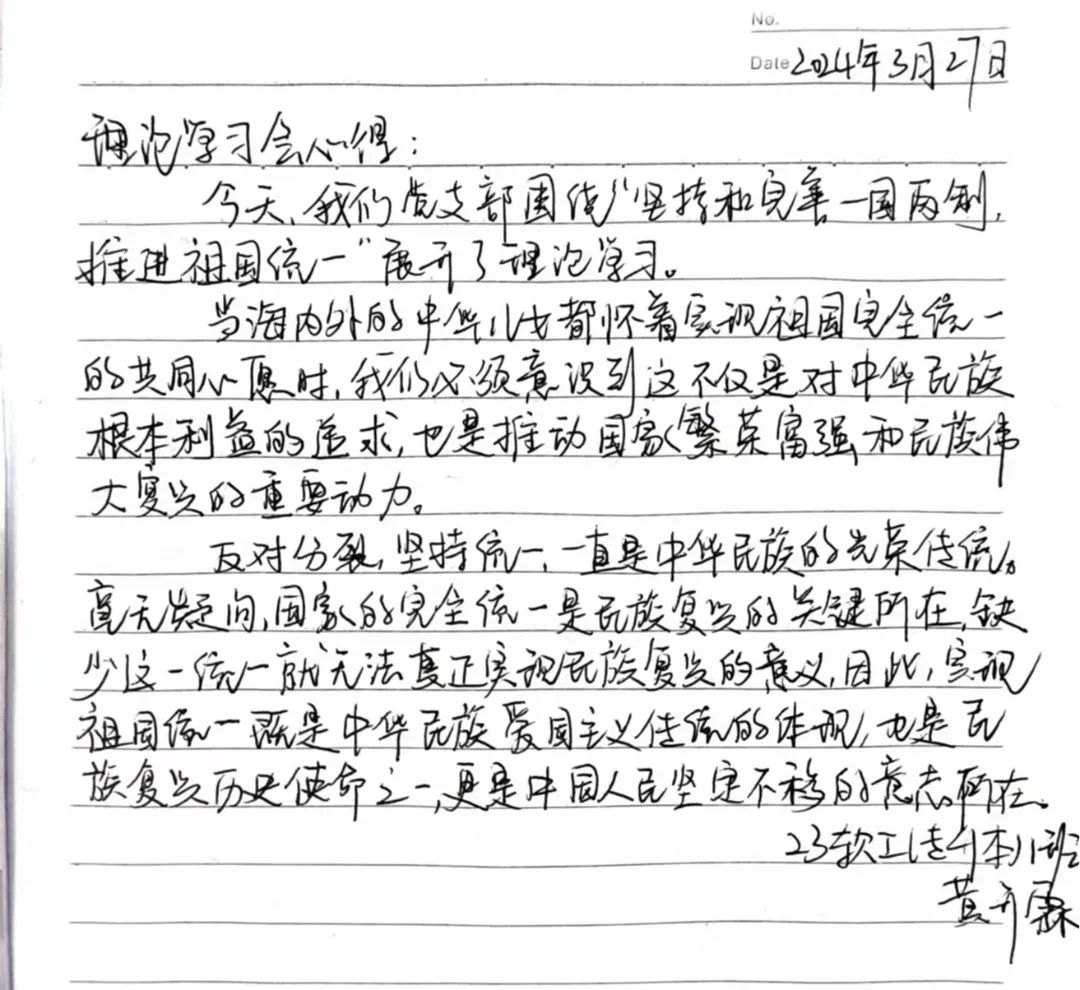 No.
Date 2024年3月27日
理论学习会心得:
今天,我们党支部围绕"坚持和完善一国两制,
推进祖国统一"展开了理论学习。
当海内外的中华儿女都怀着实现祖国完全统一
的共同心愿时,我们必须意识到这不仅是对中华民族
根本利益的追求,也是推动国家繁荣富强和民族伟
大复兴的重要动力。
反对分裂,坚持统一,一直是中华民族的光荣传统。
毫无疑问,国家的完全统一是民族复兴的关键所在,缺
少这一统一就无法真正实现民族复兴的意义,因此,实现
祖国统一既是中华民族爱国主义传统的体现,也是民
族复兴历史使命之一,更是中国人民坚定不移的意志所在。
23软工(专升本)1班
黄开霖